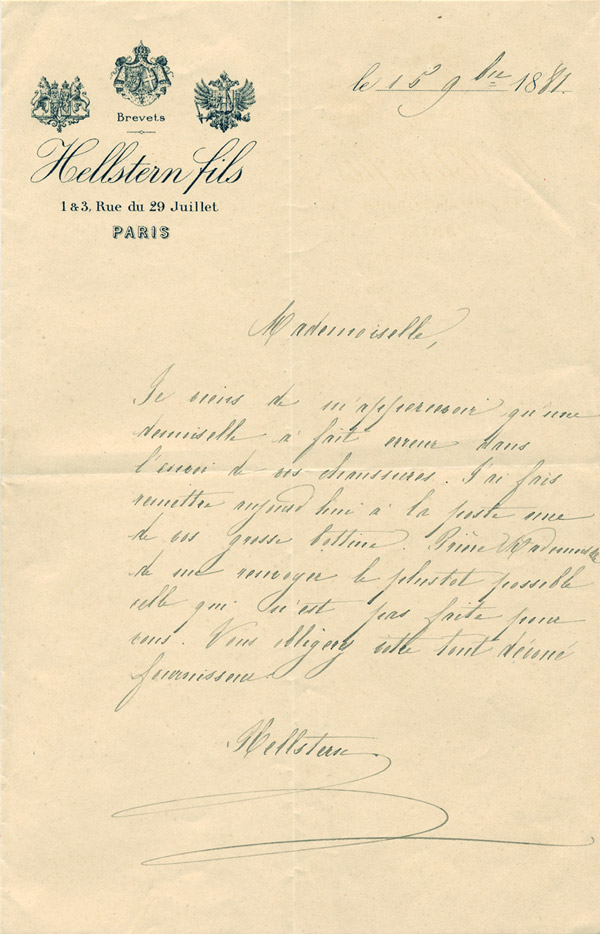 le 15 9bre 1881.
Brevets
Hellstern fils
1 & 3, Rue du 29 Juillet
PARIS
Mademoiselle,
Je viens de m'appercevoir qu'une
demoiselle à fait erreur dans
l'envoi de vos chaussures. J'ai fais
remettre aujourd'hui à la poste une
de vos grosse bottine. Prière Mademoiselle
de me renvoyer le plustot possible
celle qui n'est pas faite pour
vous. Vous obligerez votre tout dévoué
fournisseur.
Hellstern